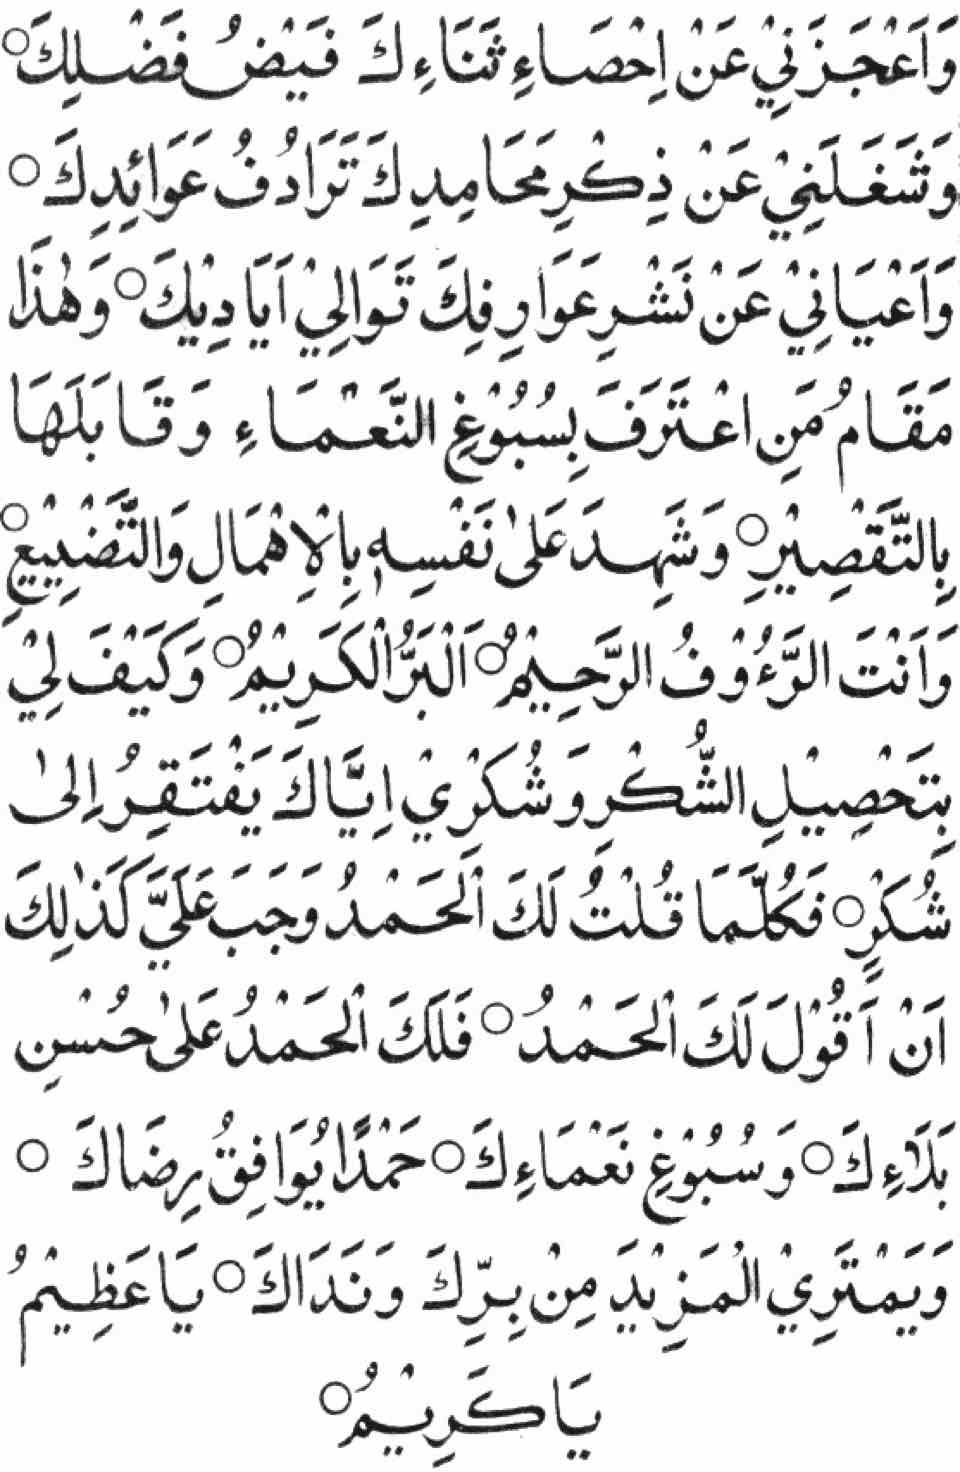 وَاَعْجَزَنِيْ عَنْ اِحْصَاءِ ثَنَاءِكَ فَيْضُ فَضْلِكَ ○
وَشَغَلَنِيْ عَنْ ذِكْرِ مَحَامِدِكَ تَرَادُفُ عَوَائِدِكَ ○
وَاَعْيَانِيْ عَنْ نَشْرِ عَوَارِفِكَ تَوَالِيْ اَيَادِيْكَ ○ وَهٰذَا
مَقَامُ مَنِ اعْتَرَفَ بِسُبُوْغِ النَّعْمَاءِ وَقَابَلَهَا
بِالتَّقْصِيْرِ ○ وَشَهِدَ عَلىٰ نَفْسِهٖ بِالْاِهْمَالِ وَالتَّضْيِيْعِ ○
وَاَنْتَ الرَّءُوْفُ الرَّحِيْمُ ○ اَلْبَرُّ الْكَرِيْمُ ○ وَكَيْفَ لِيْ
بِتَحْصِيْلِ الشُّكْرِ وَشُكْرْيْ اِيَّاكَ يَفْتَقِرُ اِلىٰ
شُكْرٍ ○ فَكُلَّمَا قُلْتُ لَكَ الْحَمْدُ وَجَبَ عَلَيَّ كَذٰلِكَ
اَنْ اَقُوْلَ لَكَ الْحَمْدُ ○ فَلَكَ الْحَمْدُ عَلىٰ حُسْنِ
بَلَاءِكَ ○ وَسُبُوْغِ نَعْمَاءِكَ ○ حَمْدًا يُوَافِقُ رِضَاكَ ○
وَيَمْتَرِيْ الْمَزِيْدَ مِنْ بِرِّكَ وَنَدَاكَ ○ يَا عَظِيْمُ
يَا كَرِيْمُ ○